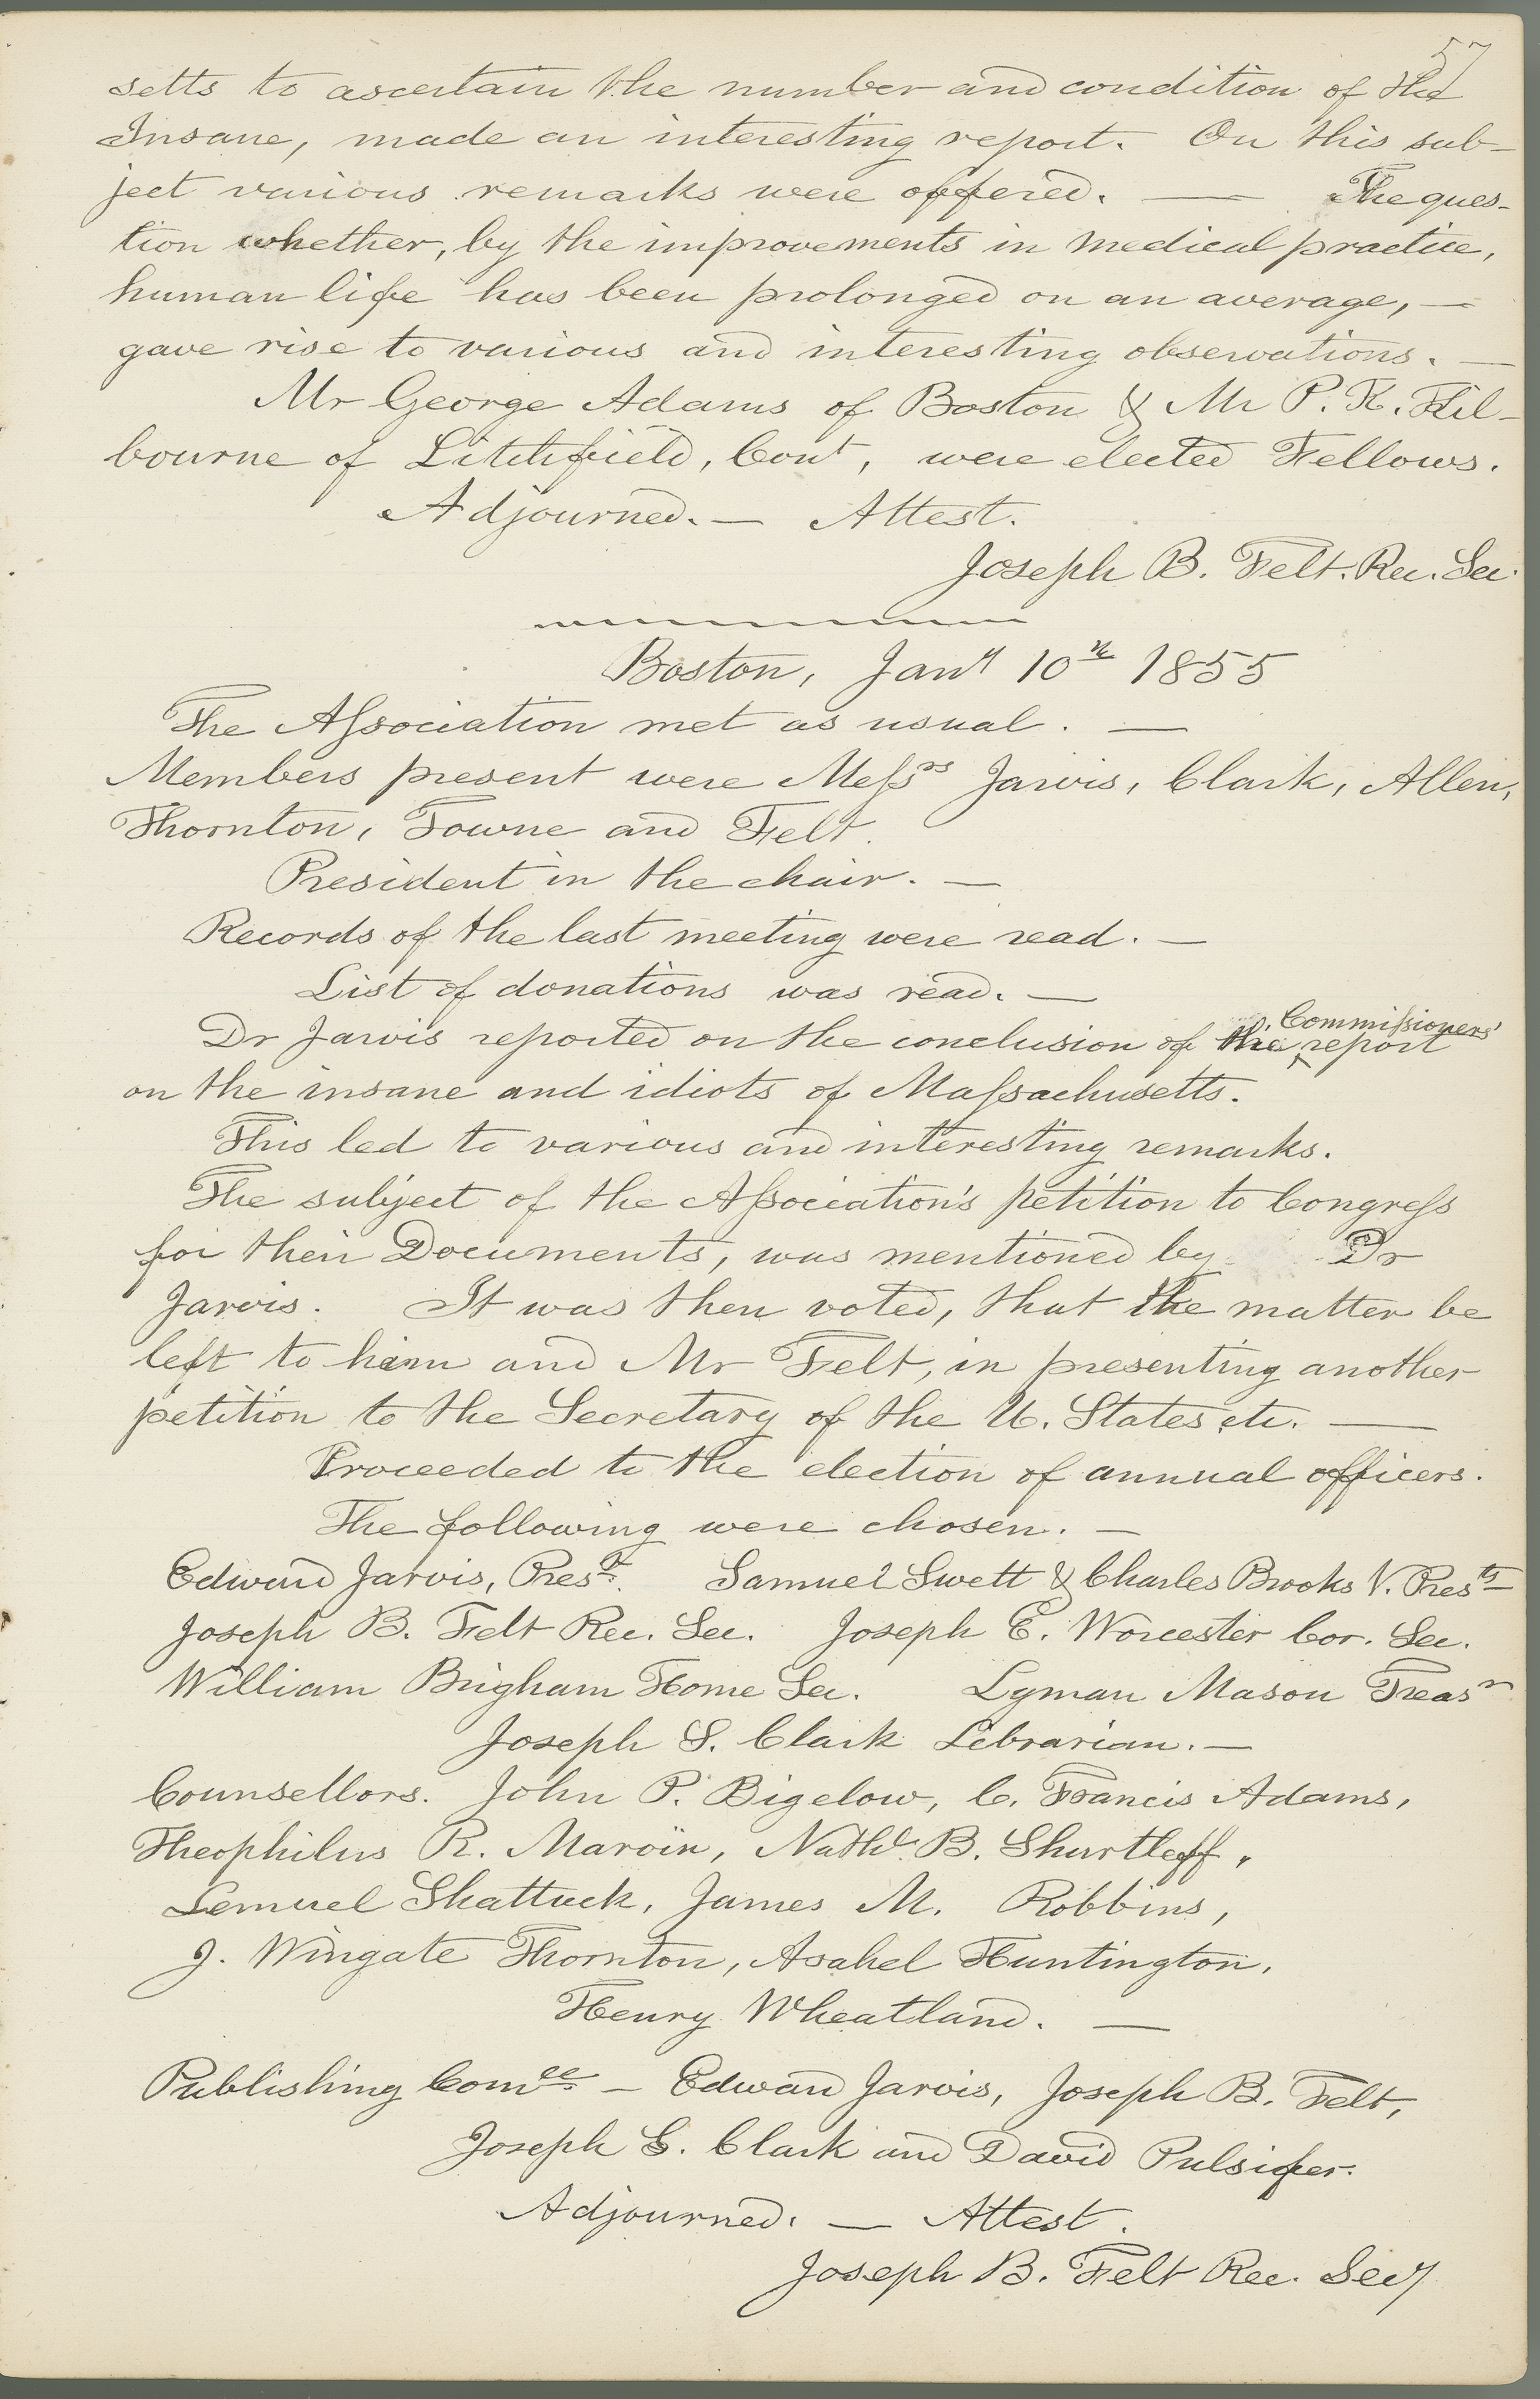 57
setts to ascertain the number and condition of the
Insane, made an interesting report. On this sub-
ject various remarks were offered. — The ques-
tion whether, by the improvements in medical practice,
human life has been prolonged on an average, —
gave rise to various and interesting observations. —
Mr George Adams of Boston & Mr P. K. Kil-
bourne of Litchfield, Cont, were elected Fellows.
Adjourned. — Attest.
Joseph B. Felt. Rec. Sec.
Boston, Jany 10th 1855
The Association met as usual. —
Members present were Messrs Jarvis, Clark, Allen,
Thornton, Towne and Felt.
President in the chair. —
Records of the last meeting were read. —
List of donations was read. —
Dr Jarvis reported on the conclusion of the Commissioners' report
on the insane and idiots of Massachusetts.
This led to various and interesting remarks.
The subject of the Association's petition to Congress
for their Documents, was mentioned by Dr
Jarvis. It was then voted, that the matter be
left to him and Mr Felt, in presenting another
petition to the Secretary of the U. States etc. —
Proceeded to the election of annual officers.
The following were chosen. —
Edward Jarvis, Prest. Samuel Swett & Charles Brooks V. Prests
Joseph B. Felt Rec. Sec. Joseph E. Worcester Cor. Sec.
William Brigham Home Sec. Lyman Mason Treasr
Joseph S. Clark Librarian. —
Counsellors. John P. Bigelow, C. Francis Adams,
Theophilus R. Marvin, Nathl. B. Shurtleff,
Lemuel Shattuck, James M. Robbins,
J. Wingate Thornton, Asahel Huntington,
Henry Wheatland. —
Publishing Comee. — Edward Jarvis, Joseph B. Felt,
Joseph S. Clark and David Pulsifer.
Adjourned. — Attest.
Joseph B. Felt Rec. Secy